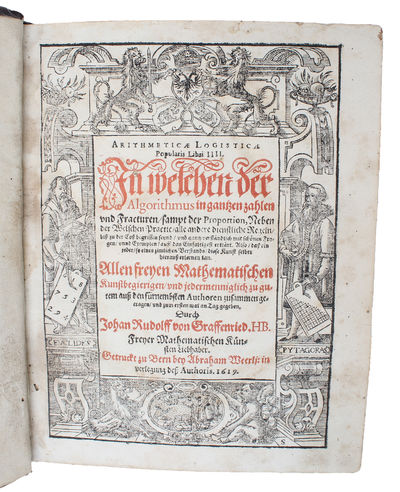 ARITHMETICÆ LOGISTICÆ
Popularis Libri IIII.
In welchen der
Algorithmus in gantzen zahlen
vnd Fracturen / sampt der Proportion, Neben
der Welschen Practic / alle andere dienstliche Regeln /
biß zu der Coß begriffen seynd / vnd gantz verständtlich mit schönen Fra-
gen / vnnd Exemplen / auff das Einfaltigest erklärt. Also / daß ein
jeder / so eines zimlichen Verstands / diese Kunst selber
hierauß erlernen kan.
Allen freyen Mathematischen
Kunstbegirigen / vnd jedermenniglich zu gu-
tem auß den fürnembsten Authoren zusammen ge-
tragen / vnd zum ersten mal an Tag gegeben,
Durch
Johan Rudolff von Graffenried. HB.
Freyer Mathematischen Kün-
sten Liebhaber.
Getruckt zu Bern bey Abraham Weerli: in
verlegung deß Authoris. 1619.
PYTAGORAS